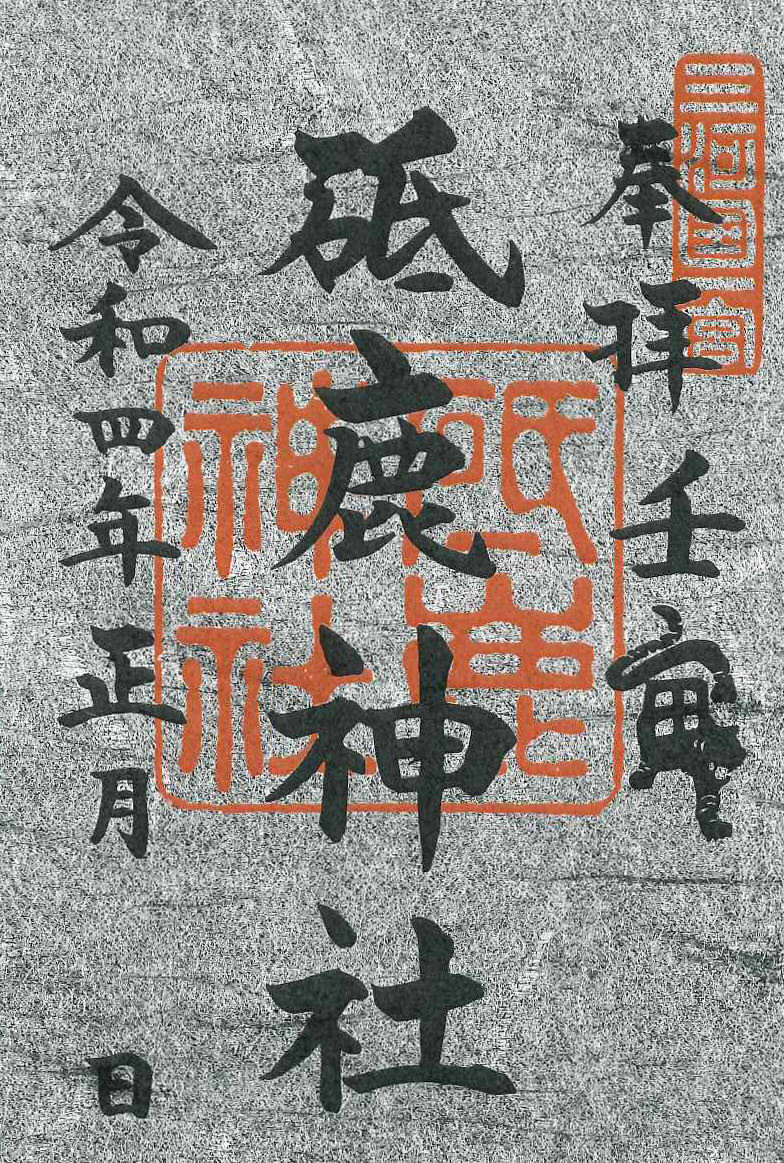 三河国一宮
奉拝 壬寅
砥鹿神社
砥鹿神社
令和四年正月 日